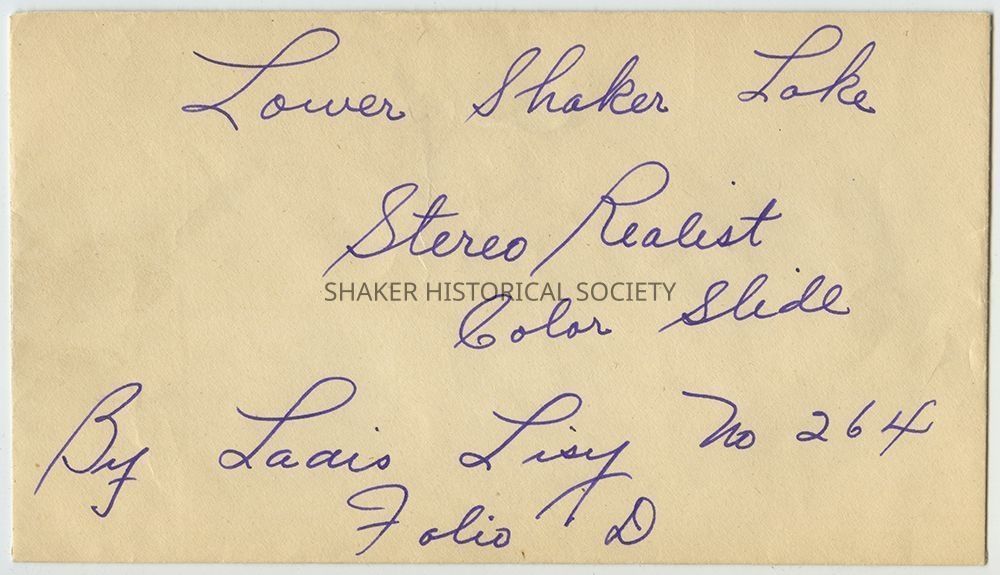 Lower Shaker Lake
Stereo Realist
SHAKER HISTORICAL SOCIETY
Color Slide
By Ladis Lisy No 264
Folio D